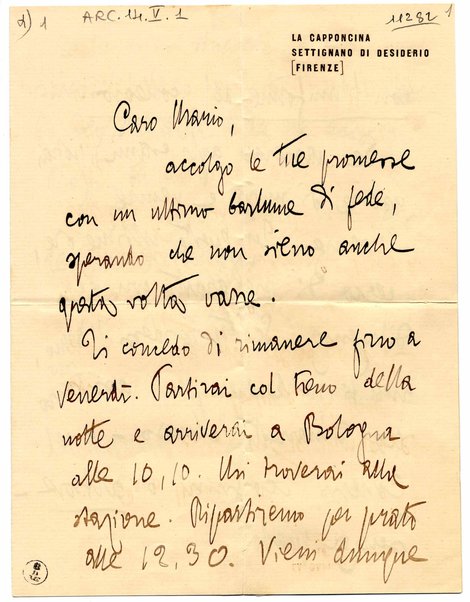 2) 1 ARC. 14. V. 1 11282 1
LA CAPPONCINA
SETTIGNANO DI DESIDERIO
[FIRENZE]
Caro Mario,
accolgo le tue promesse
con un ultimo barlume di fede,
sperando che non sieno anche
questa volta vane.
Ti concedo di rimanere fino a
venerdì. Partirai col treno della
notte e arriverai a Bologna
alle 10,10. Mi troverai alla
stazione. Ripartiremo per Prato
alle 12.30. Vieni dunque